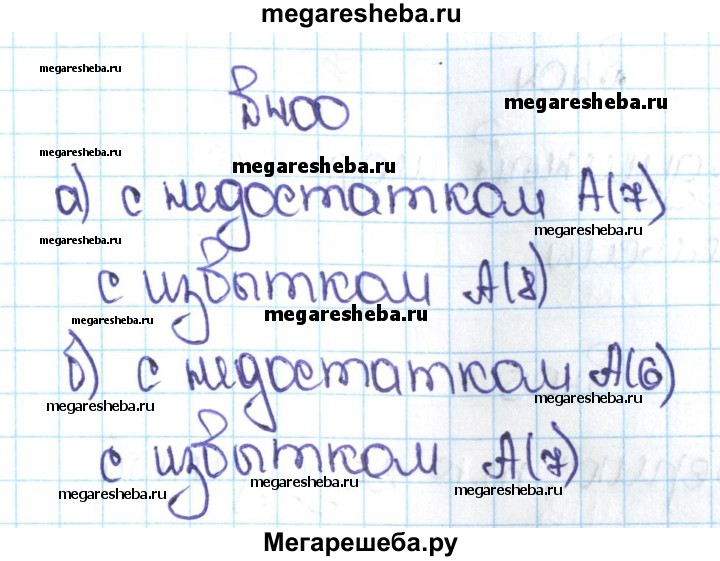 megaresheba.ru
megaresheba.ru
№400
megaresheba.ru
megaresheba.ru
megaresheba.ru
а) с недостатком А(7)
megaresheba.ru
megaresheba.ru
с избытком А(8)
megaresheba.ru
megaresheba.ru
б) с недостатком А(6)
megaresheba.ru
megaresheba.ru
с избытком А(7)
megaresheba.ru
megaresheba.ru
megaresheba.ru
Мегарешеба.ру